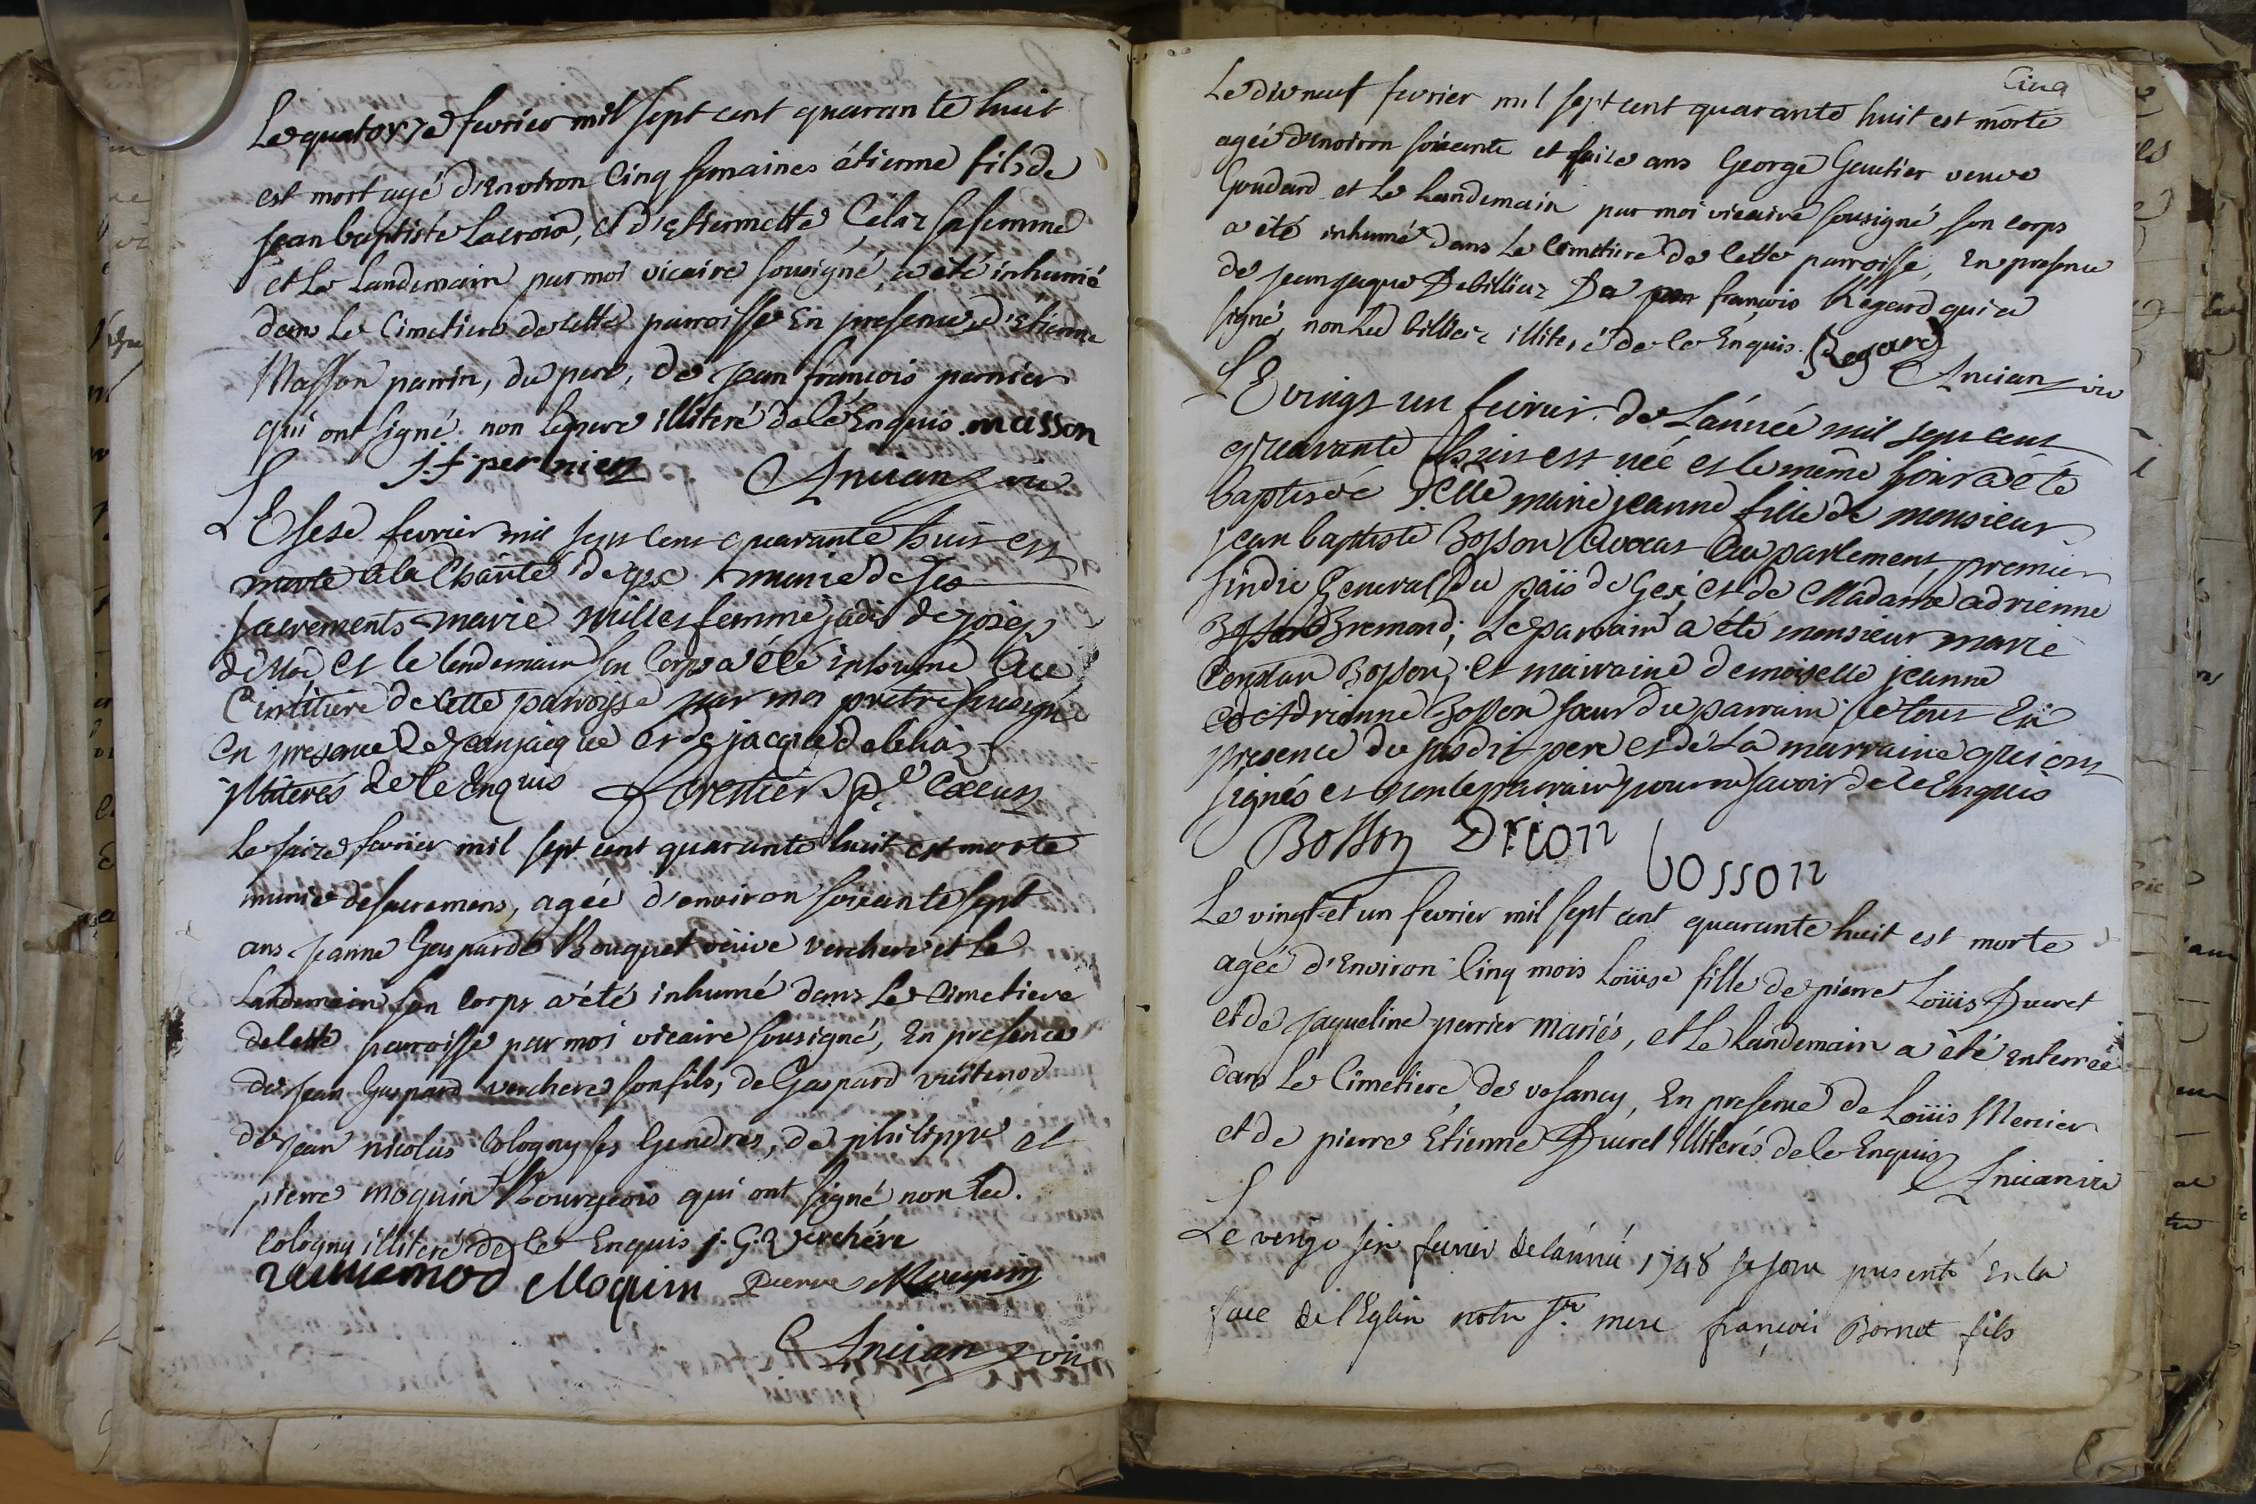 Le quatorze fevrier mil sept cent quarante huit
est mort agé d'Environ Cinq semaines étienne fils de
jean baptiste Lacroix, et d'estiennette Célaz sa femme
et Le Landemain par moi vicaire sousigné, a été inhumé
dans Le Cimetiere de cette parroisse En presence d'Etienne
Masson parrin, du pere, de jean françois pernier
qui ont signé non le pere illiteré de ce Enquis. masson
J. f. pernier Ancian vic
LE sese fevrier mil sept Cens quarante huit est
morte a la Charité de gex munie de ses
sacrements marie milles femme jadis de josep
et le lendemain son Corps a été inhumé au
Cimitiere de cette parroisse par moi prêtre susigné
en presence de jeanjacque et de jacque debiliaz
illiterés de ce Enquis
Le saize fevrier mil sept cent quarante huit est morte
munie de sacremens, agée d'environ soixante sept
ans jeanne Gasparde Bouquet veuve verchere et Le
Landemain son Corps a été inhumé dans Le Cimetiere
de cette parroisse par moi vicaire sousigné, En presence
de jean Gaspard verchere son fils, de Gaspard vuitenod
de jean nicolas Cologny ses Gendres, de philippe et
pierre moquin Bourgeois qui ont signé non Led.
Cologny illiteré de ce Enquis j. G. Verchére
vuittenod Moquin Pierre Moquin
Ancian vic
Cinq
Le dixneuf fevrier mil sept cent quarante huit est morte
agée d'Environ soixante et saize ans George Gautier veuve
Goudard et Le Landemain par moi vicaire sousigné son corps
a été inhumé dans Le Cimetiere de Cette parroisse, En presence
de jean jaque Debilliaz De françois Regard qui a
signé, non Led billiaz illiteré de ce Enquis. Regard
Ancian vic
LE vingt un fevrier de L'année mil sept cent
quarante huit est née et le même jour a été
baptisée Delle marie jeanne fille de monsieur
jean baptiste Bosson avocat au parlement, premier
sindic General du païs de Gex, et de Madame adrienne
Bremond; Le parrain a été monsieur marie
Constan Bosson; et mairraine demoiselle jeanne
Adrienne Bosson sœur du parrain; le tout En
presence du susdit pere et de La marraine qui ont
signés et non le parrain pour ne savoir de ce Enquis
Bosson Drion bosson
Le vingt-et un fevrier mil sept cent quarante huit est morte
agée d'Environ Cinq mois Loüise fille de pierre Loüis Ducret
et de jaqueline perrier mariés, et Le Landemain a été Enterrée
dans Le Cimetiere de vesancy, En presence de Loüis Mercier
et de pierre Etienne Ducret illiterés de ce Enquis
Ancian vic
Le vingt six fevrier de l'année 1748 se sont presenté En la
face de l'Eglise notre Ste mere françois Bornet fils